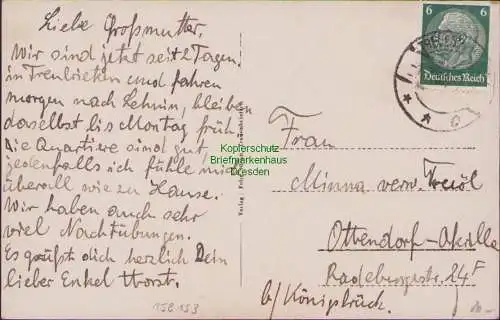 Liebe Großmutter.
Wir sind jetzt seit 2 Tagen
in Treubrietzen und fahren
morgen nach Lehnin, bleiben
daselbst bis Montag früh.
Die Quartiere sind gut
jedenfalls ich fühle mich
überall wie zu Hause.
Wir haben auch sehr
viel Nachtübungen.
Es grüßt dich herzlich Dein
lieber Enkel Horst.
158 153
6 6
Deutsches Reich
Kopierschutz
Briefmarkenhaus
Dresden
Frau
Minna verw.
Ottendorf-Okrilla
Radeburgerstr. 24F
b/Königsbrück.